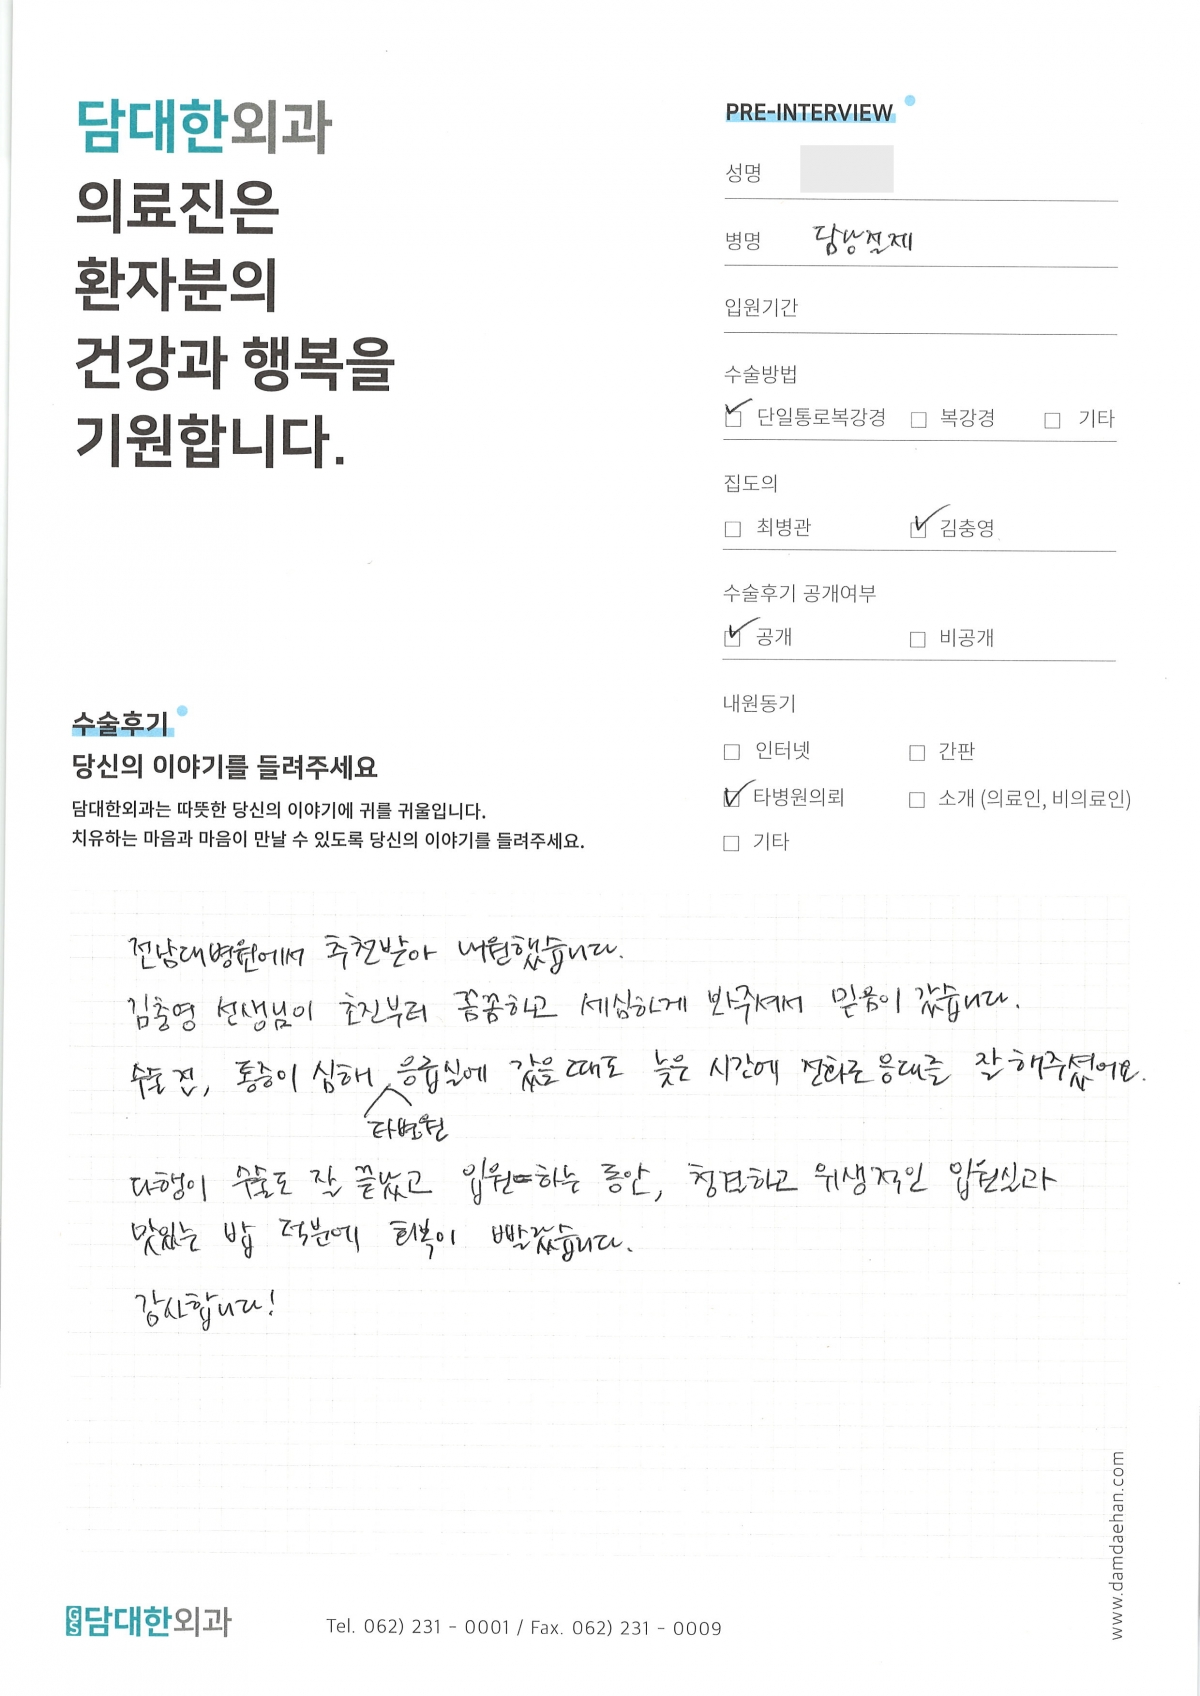 담대한외과
의료진은
환자분의
건강과 행복을
기원합니다.
PRE-INTERVIEW
성명
병명 담낭절제
입원기간
수술방법
☑ 단일통로복강경 □ 복강경 □ 기타
집도의
□ 최병관 ☑ 김충영
수술후기 공개여부
☑ 공개 □ 비공개
내원동기
□ 인터넷 □ 간판
☑ 타병원의뢰 □ 소개 (의료인, 비의료인)
□ 기타
수술후기
당신의 이야기를 들려주세요
담대한외과는 따뜻한 당신의 이야기에 귀를 귀울입니다.
치유하는 마음과 마음이 만날 수 있도록 당신의 이야기를 들려주세요.
전남대병원에서 추천받아 내원했습니다.
김충영 선생님이 초진부터 꼼꼼하고 세심하게 봐주셔서 믿음이 갔습니다.
수술 전, 통증이 심해 응급실에 갔을 때도 늦은 시간에 전화로 응대를 잘 해주셨어요.
타병원
다행이 수술도 잘 끝났고 입원하는 동안, 청결하고 위생적인 입원실과
맛있는 밥 덕분에 회복이 빨랐습니다.
감사합니다!
www.damdaehan.com
GS 담대한외과
Tel. 062) 231 - 0001 / Fax. 062) 231 - 0009